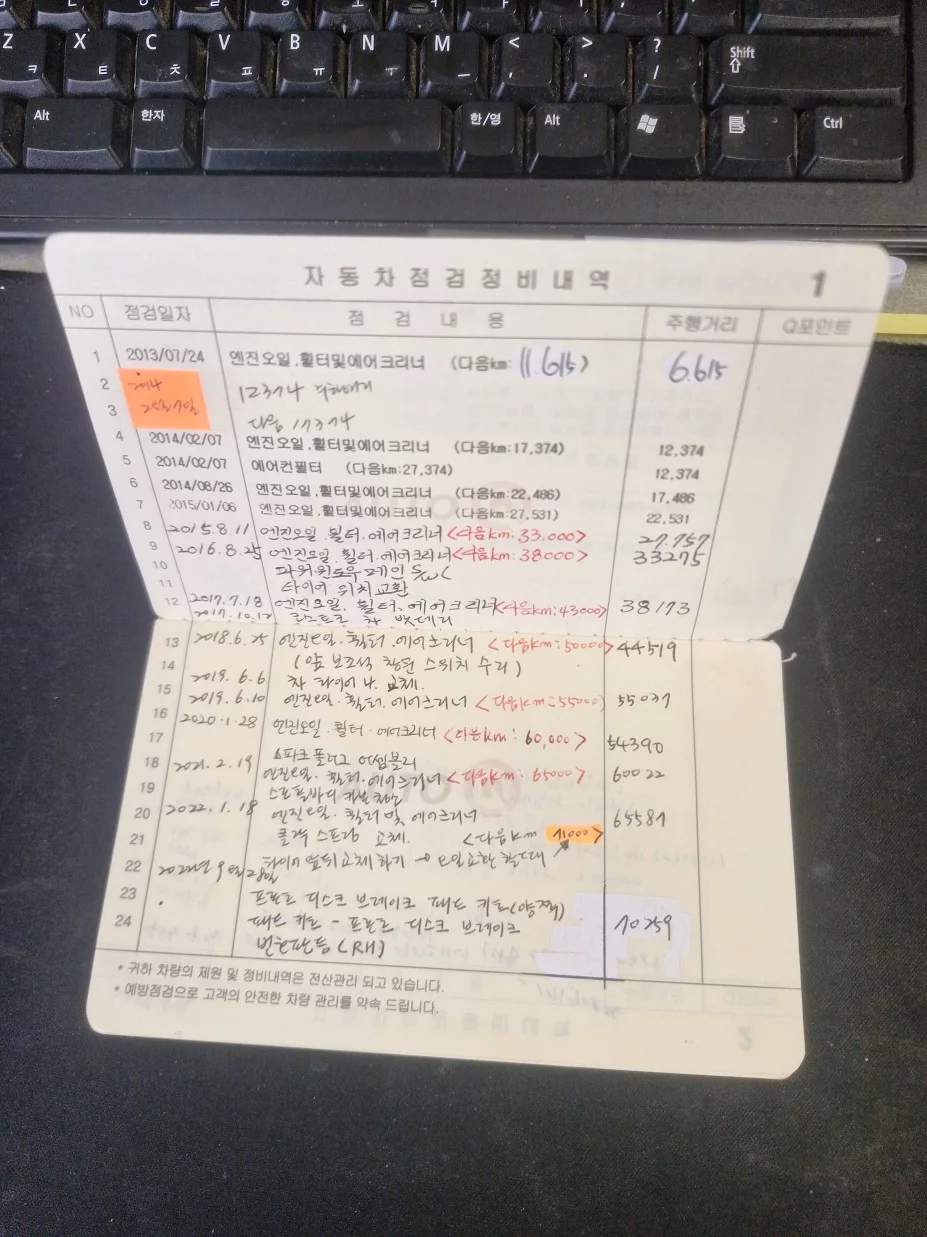 Z X C V B N M < > ? Shift
ㅋ ㅌ ㅊ ㅍ ㅠ ㅜ ㅡ , . /
Alt 한자 한/영 Alt Ctrl
자동차점검정비내역 1
NO 점검일자 점 검 내 용 주행거리 Q포인트
1 2013/07/24 엔진오일.휠터및에어크리너 (다음km: 11.615) 6.615
2 2014 12374
3 다음 17374
4 2014/02/07 엔진오일.휠터및에어크리너 (다음km:17,374) 12,374
5 2014/02/07 에어컨필터 (다음km:27,374) 12,374
6 2014/08/26 엔진오일.휠터및에어크리너 (다음km:22,486) 17,486
7 2015/01/06 엔진오일.휠터및에어크리너 (다음km:27,531) 22,531
8 2015.8.11 엔진오일.휠터.에어크리너 <다음km: 33.000> 27.757
9 2016.8.25 엔진오일.휠터.에어크리너 <다음km: 38000> 33275
10 파워윈도우 메인 S/W
11 타이어 위치교환
12 2017.7.18 엔진오일, 휠터, 에어크리너 <다음km: 43000> 38173
2017.10.12 밧데리
13 2018.6.25 엔진오일.휠터.에어크리너 <다음km: 50000> 44519
14 (앞 보조석 창문 스위치 수리)
2019.6.6 차 타이어 4. 교체.
15 2019.6.10 엔진오일.휠터.에어크리너 <다음km: 55000>
16 2020.1.28 엔진오일.휠터.에어크리너 <다음km: 60,000> 54390
17 스파크 플러그 어셈블리
18 2021.2.19 엔진오일.휠터.에어크리너 <다음km: 65000> 60022
19
20 2022.1.18 엔진오일.휠터 및 에어크리너 65581
21 교체. <다음km
22 타이어 앞뒤교체하기 → 오일교환 할때
23 프론트 디스크 브레이크 패드 키트(양쪽)
24 패드 키트 - 프론트 디스크 브레이크 70259
(RH)
* 귀하 차량의 제원 및 정비내역은 전산관리 되고 있습니다.
* 예방점검으로 고객의 안전한 차량 관리를 약속 드립니다.